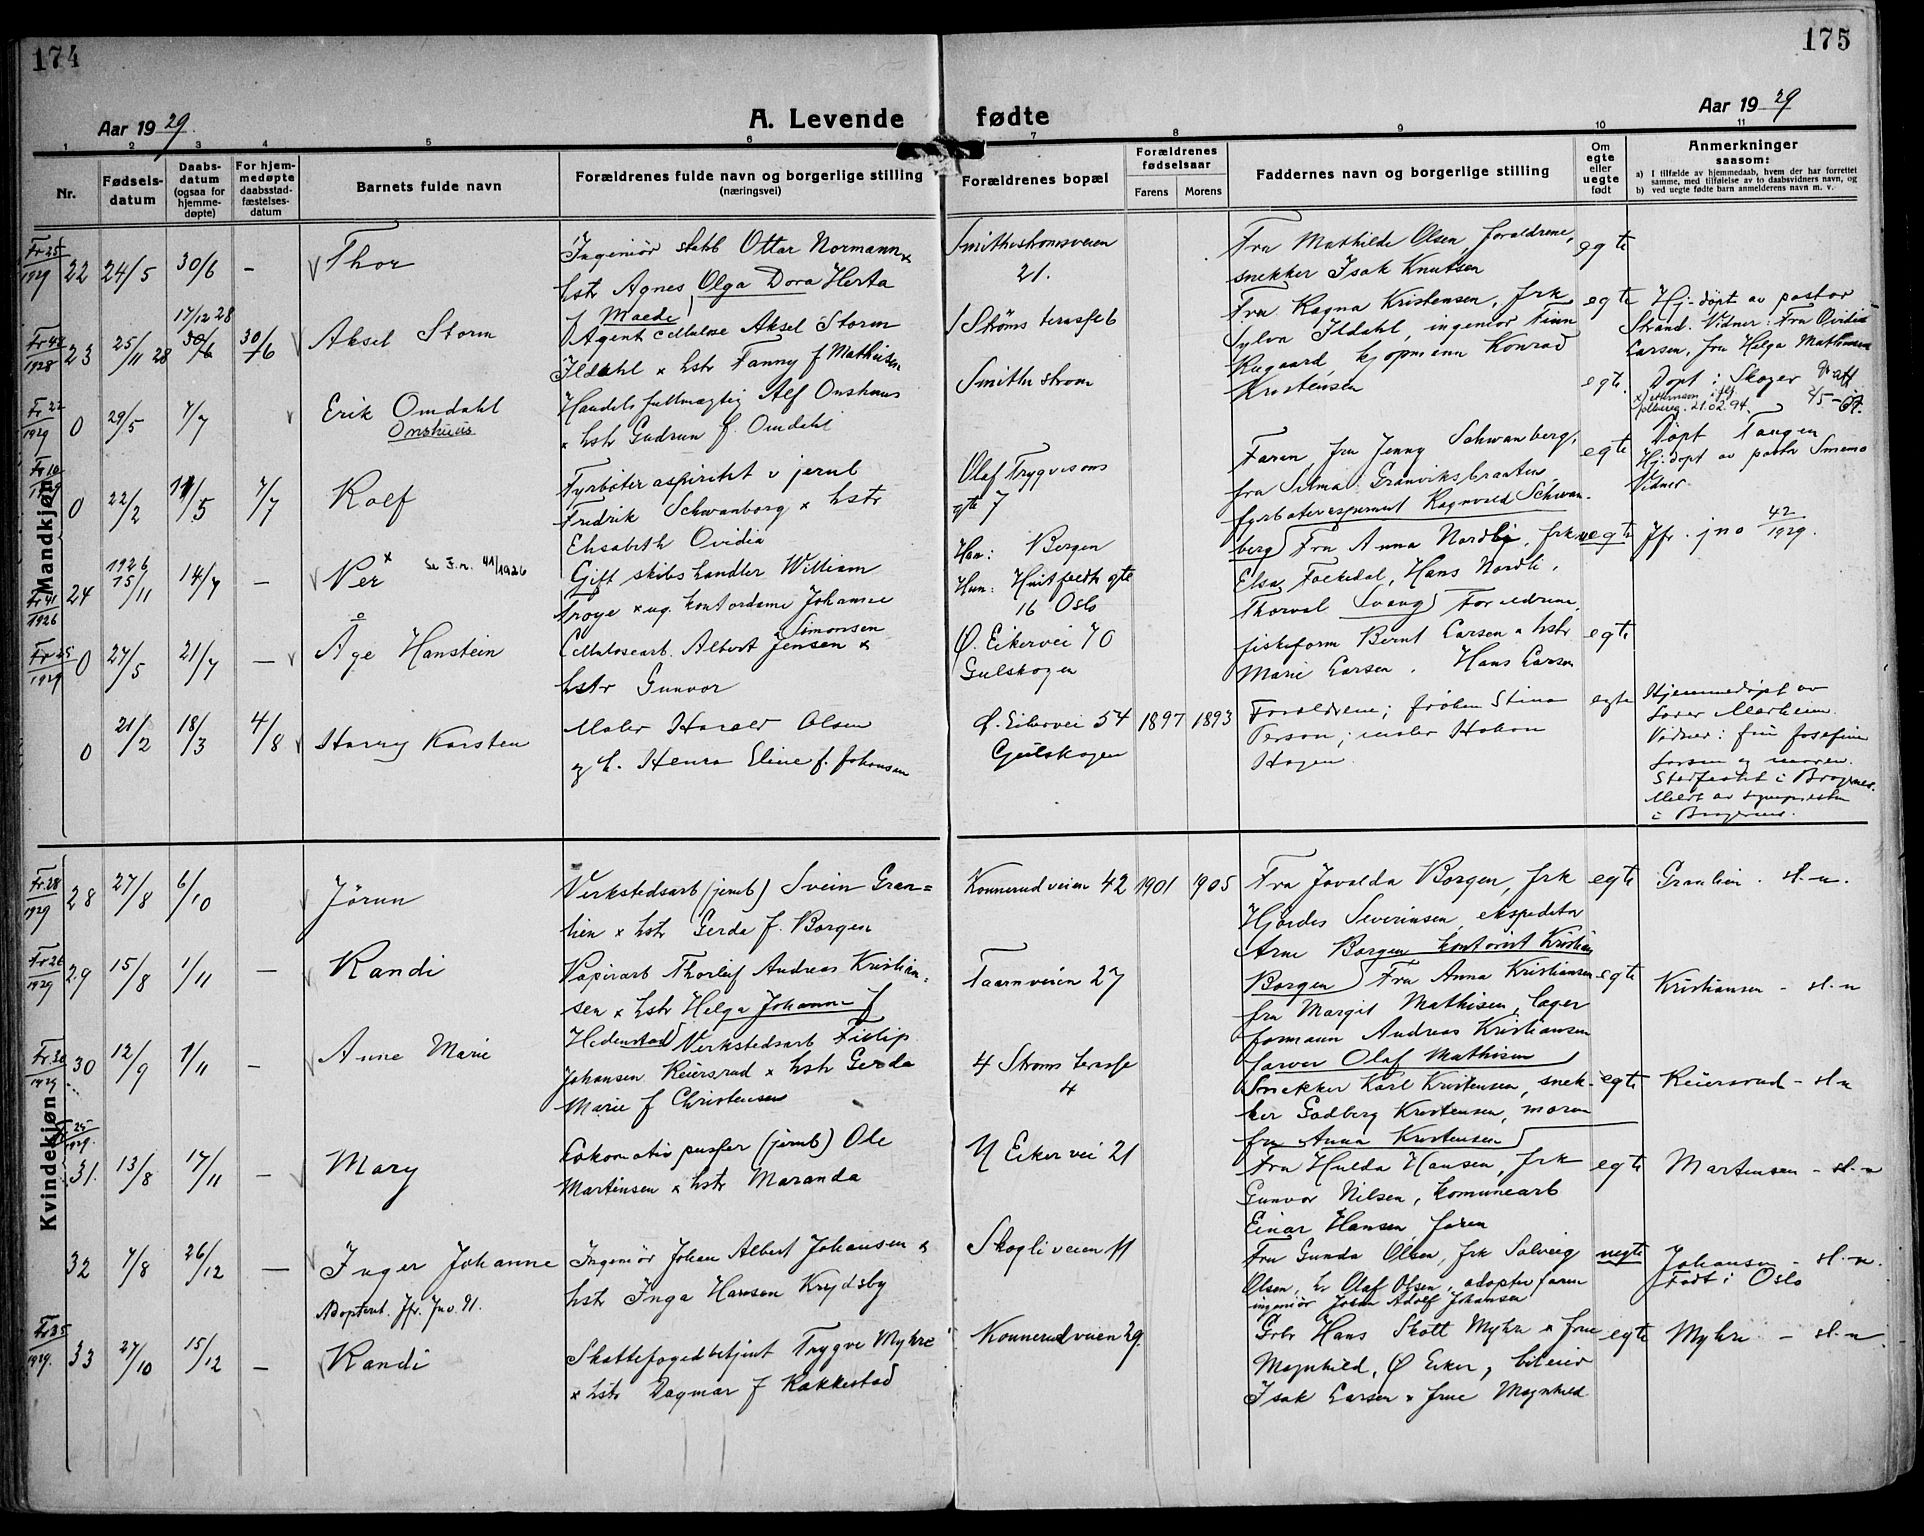 174
175
Aar 1929.
A. Levende fødte
Aar 1929
1 2 3 4 5 6 7 8 9 10 11
Nr.
Fødsels-
datum
Daabs-
datum
(ogsaa for
hjemme-
døpte)
For hjem-
medøpte
daabsstad-
fæstelses-
datum
Barnets fulde navn
Forældrenes fulde navn og borgerlige stilling
(næringsvei)
Forældrenes bopæl
Forældrenes
fødselsaar
Farens
Morens
Faddernes navn og borgerlige stilling
Om
egte
eller
uegte
født
Anmerkninger
saasom:
a) I tilfælde av hjemmedaab, hvem der har forrettet
samme, med tilføielse av to daabsvidners navn, og
b) ved uegte fødte barn anmelderens navn m. v.
Mandkjøn.
Fr 25/1929
22 24/5 30/6 -
Thor
Ingeniør Ottar Normann x
hstr Agnes Olga Dora Herta
f Maede
21.
Fru Mathilde Olsen, forældrene,
snekker Isak Knutsen
egte
Fr 1928
23 25/11 28 17/12 28 30/6 30/6
Aksel Storm
Agent cellulose Aksel Storm
Ildahl x hstr Fanny f Mathisen
1 Strøms terasse 6
Fru Ragna Kristensen, frk
Sylva Ildahl, ingeniør Finn
Rugaard, kjøpmann Konrad
Kristensen
egte
Hj. døpt av pastor
Strand. Vidner: Fru Ovidia
Larsen, fru Helga Mathisen
Fr 22/1929
0 29/5 7/7
Erik Omdahl
Onshuus
Handelsfullmægtig Alf Onshuus
x hstr Gudrun f. Omdahl
Smithestrøm
egte.
Døpt i Skoger
21.02.94.
Fr 10/1929
0 22/2 11/5 7/7
Rolf
Fyrbøteraspirant v jernb
Fredrik Schwanborg x hstr
Elisabeth Ovidia
Olaf Trygvesons
gte 7
Faren, fru Jenny Schwanberg,
fra Silma Granviksbraaten
fyrbøteraspirant Ragnvald Schwan-
berg
egte
Døpt Tangen
Hj. døpt av pastor Smemo
Vidner
Fr 41/1926
24 1926 15/11 14/7 -
Per x Se F.r. 41/1926
Gift skibshandler William
Troye x ug. kontordame Johanne
Simonsen
Han: Bergen
Hun: Huitfeldts gte
16 Oslo
Fru Anna Nordli, frk
Elsa Folkedal, Hans Nordli,
Thorval Svang
uegte
Jfr. jno 42/1929.
Fr 25/1929
0 27/5 21/7 -
Åge Hanstein
Cellulosearb. Albert Jensen x
hstr Gunvor
Ø. Eikervei 70
Gulskogen
Forældrene,
fiskeform Bernt Larsen x hstr
Marie Larsen. Hans Larsen
egte
0 21/2 18/3 4/8
Harry Karsten
Maler Harald Olsen
og h. Henra Eline f. Johansen
Ø. Eikervei 54
Gulskogen
1897 1893
Forældrene; frøken Stina
Person; maler Hakon
Hagen.
egte
Hjemmedøpt av
Vidner: fru Josefine
Larsen og moren.
Stadfæstet i Bragernes.
Meldt av sognepresten
i Bragernes.
Kvindekjøn.
Fr. 28/1929
28 27/8 6/10
Jørun
Verkstedsarb (jernb) Svein Gran=
lien x hstr Gerda f. Borgen
Konnerudveien 42
1901 1905
Fru Jovalda Borgen, frk
Hjørdis Severinsen, ekspeditør
Arne Borgen kontorist Kristian
Borgen
egte
Granlien - sl.-n.
Fr 26/1929
29 15/8 1/11 -
Randi
Papirarb Thorleif Andreas Kristian-
sen x hstr Helga Johanne f
Hedenstad
Taarnveien 27
Fru Anna Kristiansen
fru Margit Mathisen, lager
formann Andreas Kristiansen
farver Olaf Mathisen
egte
Kristiansen - sl.-n
Fr 30/1929
30 12/9 1/11 -
Anne Marie
Verkstedsarb Filip
Johansen Reiersrud x hstr Gerda
Marie f Christensen
4 Strøms terasse
4
Snekker Karl Kristensen, snek-
ker Godberg Kristensen, moren
fru Anna Kristensen
egte
Reiersrud - sl-n
Fr 25/1929.
31. 13/8 17/11 -
Mary
Lokomotivpusser (jernb) Ole
Martinsen x hstr Maranda
N Eikervei 21
Fru Hulda Hansen, frk
Gunvor Nilsen, komunearb
Einar Hansen faren
egte
Martensen - sl.-n
32 7/8 26/12 -
Inger Johanne
Adoptert. Jfr. Jno. 91.
Ingeniør Johan Albert Johansen x
hstr Inga Hansen Krydsby
Skogliveien 11
Fru Gunda Olsen, frk Solveig
Olsen, hr Olaf Olsen, adoptivfaren
ingeniør Johan Adolf Johansen
uegte
Johansen - sl.-n.
Født i Oslo
Fr 35/1929.
33 27/10 15/12 -
Randi
Skattefogedbetjent Trygve Myhre
x hstr Dagmar f Kakkestad
Konnerudveien 29.
Grbr Hans Skott Myhre x frue
Magnhild, Ø Eker, bileier
Isak Larsen x frue Magnhild
egte
Myhre - sl.-n